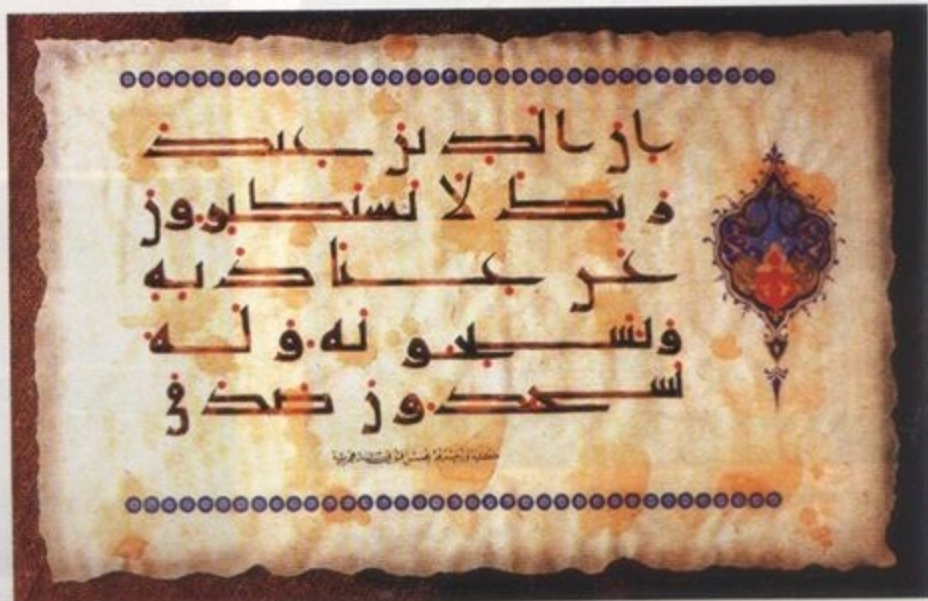 إن الذين عند
ربك لا يستكبرون
عن عبادته
ويسبحونه وله
يسجدون صدق